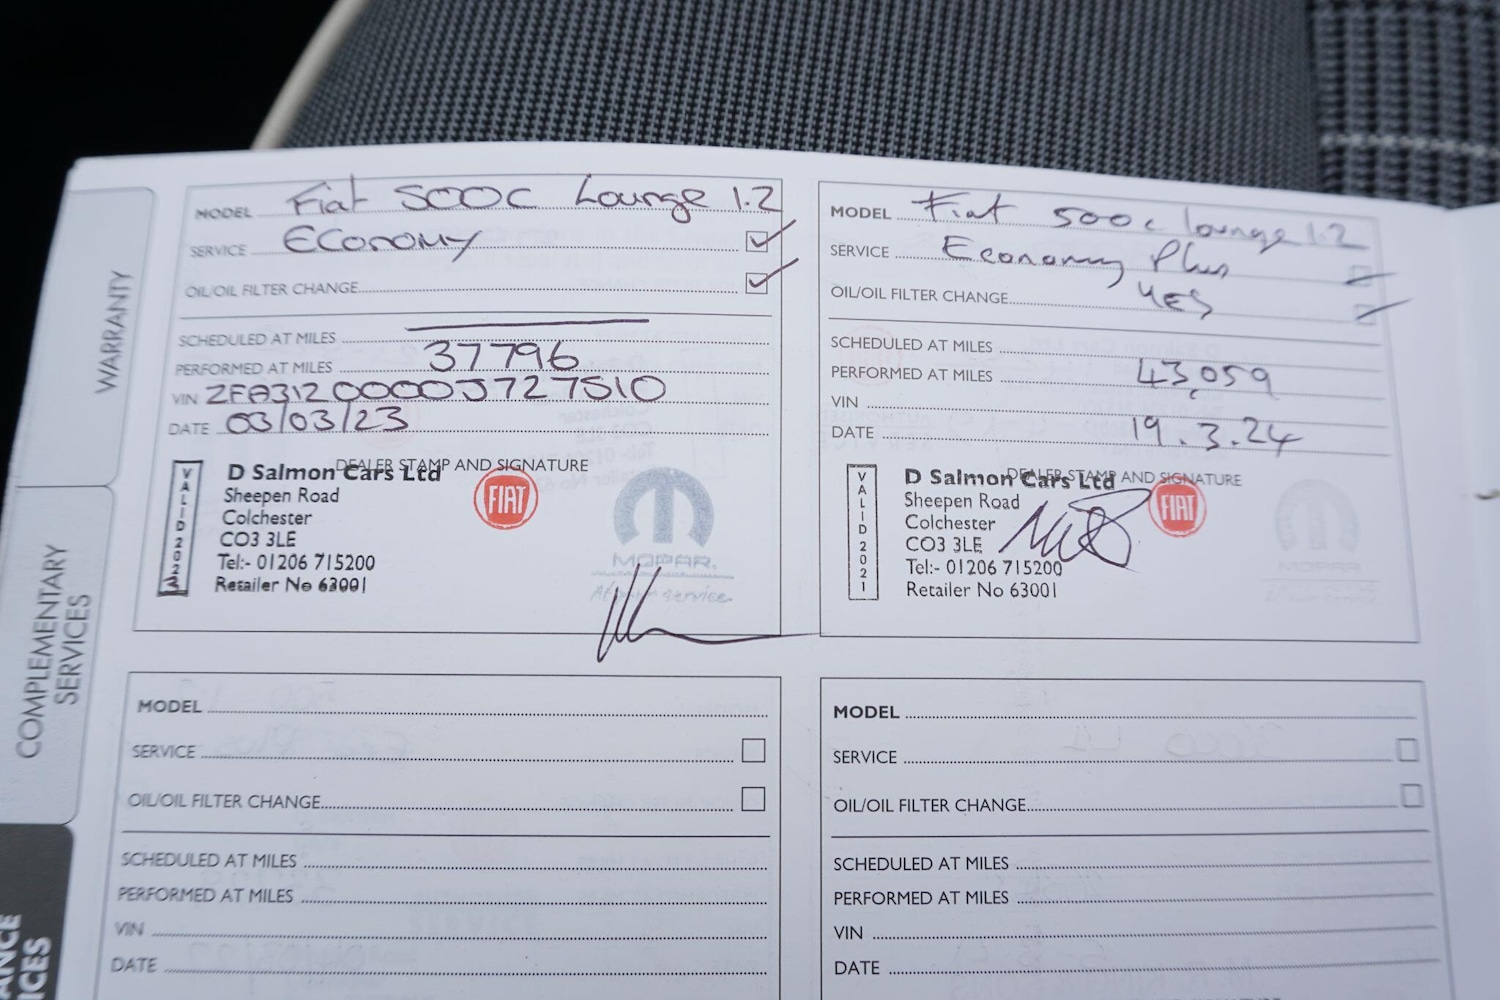 WARRANTY
COMPLEMENTARY
SERVICES
MODEL Fiat 500C Lounge 1.2
SERVICE Economy
OIL/OIL FILTER CHANGE
SCHEDULED AT MILES
PERFORMED AT MILES 37796
VIN ZFA3120000J727510
DATE 03/03/23
DEALER STAMP AND SIGNATURE
VALID 2023
D Salmon Cars Ltd
Sheepen Road
Colchester
CO3 3LE
Tel:- 01206 715200
Retailer No 63001
FIAT
MOPAR.
MODEL Fiat 500c lounge 1.2
SERVICE Economy Plus
OIL/OIL FILTER CHANGE YES
SCHEDULED AT MILES
PERFORMED AT MILES 43,059
VIN
DATE 19.3.24
DEALER STAMP AND SIGNATURE
VALID 2021
D Salmon Cars Ltd
Sheepen Road
Colchester
CO3 3LE
Tel:- 01206 715200
Retailer No 63001
FIAT
MOPAR
MODEL
SERVICE
OIL/OIL FILTER CHANGE
SCHEDULED AT MILES
PERFORMED AT MILES
VIN
DATE
MODEL
SERVICE
OIL/OIL FILTER CHANGE
SCHEDULED AT MILES
PERFORMED AT MILES
VIN
DATE